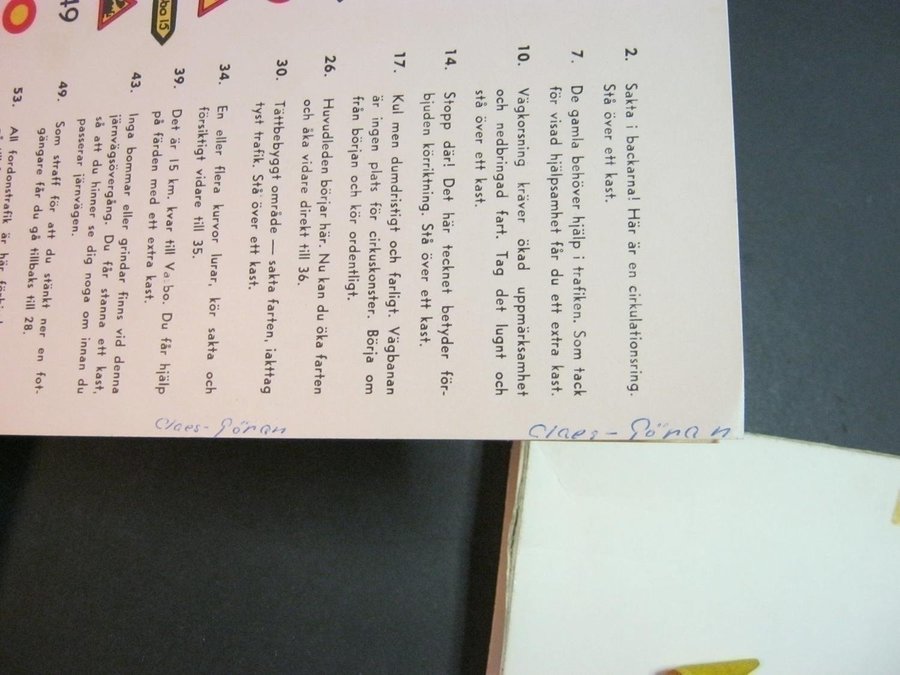 2. Sakta i backarna! Här är en cirkulationsring.
Stå över ett kast.
7. De gamla behöver hjälp i trafiken. Som tack
för visad hjälpsamhet får du ett extra kast.
10. Vägkorsning kräver ökad uppmärksamhet
och nedbringad fart. Tag det lugnt och
stå över ett kast.
14. Stopp där! Det här tecknet betyder för-
bjuden körriktning. Stå över ett kast.
17. Kul men dumdristigt och farligt. Vägbanan
är ingen plats för cirkuskonster. Börja om
från början och kör ordentligt.
26. Huvudleden börjar här. Nu kan du öka farten
och åka vidare direkt till 36.
30. Tättbebyggt område — sakta farten, iakttag
tyst trafik. Stå över ett kast.
34. En eller flera kurvor lurar, kör sakta och
försiktigt vidare till 35.
39. Det är 15 km. kvar till. Du får hjälp
på färden med ett extra kast.
43. Inga bommar eller grindar finns vid denna
järnvägsövergång. Du får stanna ett kast,
så att du hinner se dig noga om innan du
passerar järnvägen.
49. Som straff för att du stänkt ner en fot-
gängare får du gå tillbaks till 28.
53. All fordonstrafik är här
bo 15
49
Claes-Göran
Claes-Göran